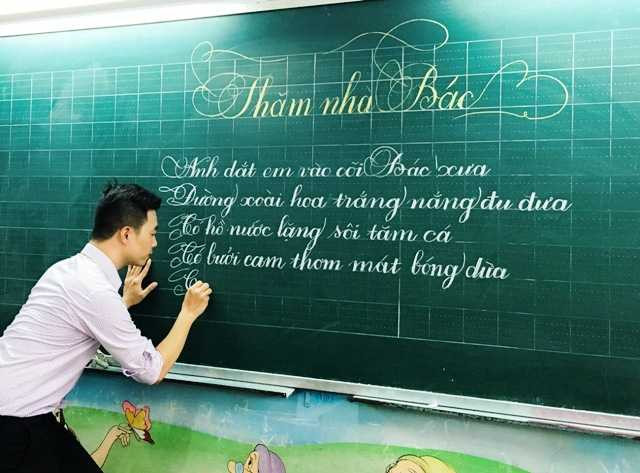 Thăm nhà Bác
Anh dắt em vào cõi Bác xưa
Đường xoài hoa trắng nắng đu đưa
Có hồ nước lặng sôi tăm cá
Có bưởi cam thơm mát bóng dừa
C